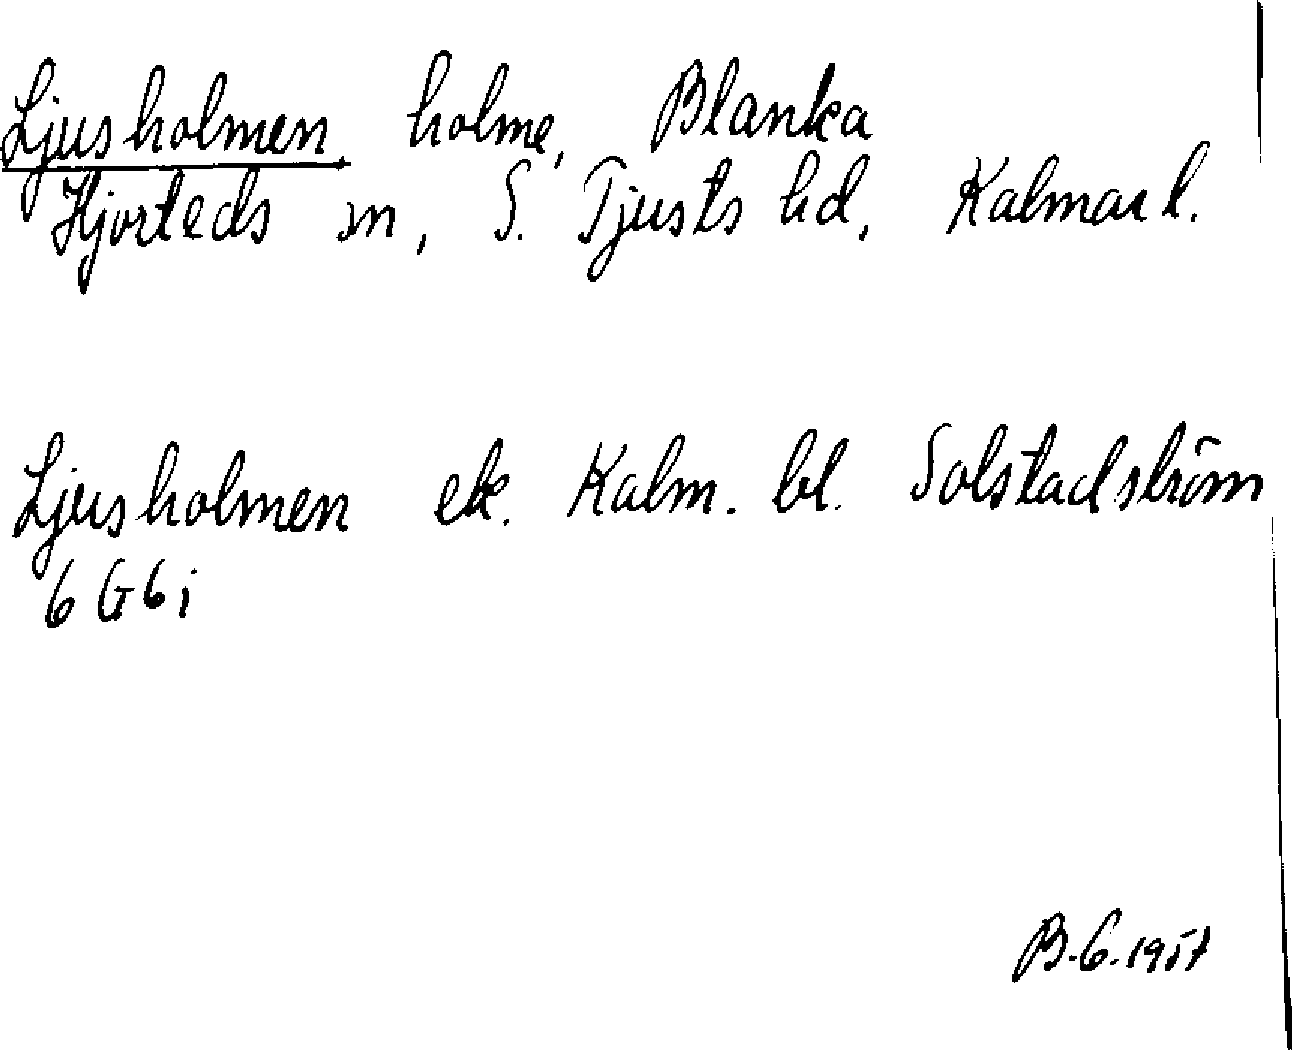 Ljusholmen, holme, Blanka
Hjorteds sn, S. Tjusts hd, Kalmar l.
Ljusholmen ek. Kalm. bl. Solstadström
6 G 6 i
B.G. 1957